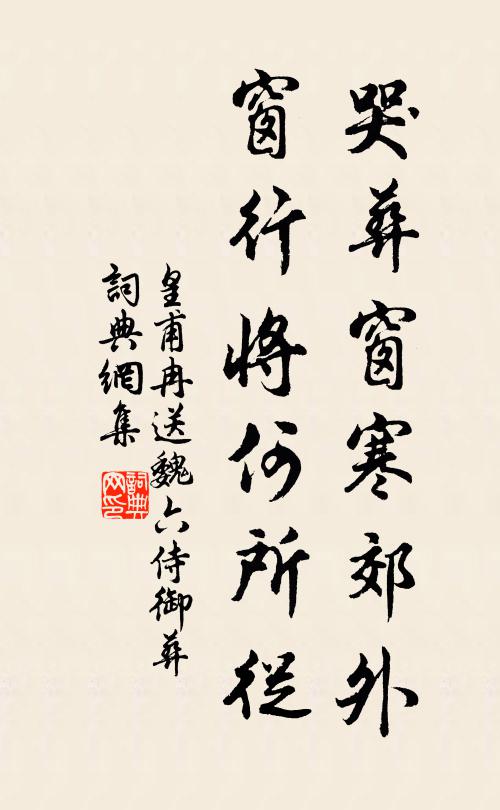 哭葬窗寒郊外
窗行將何所從
皇甫冉送魏六侍御葬
詞典網集
詞典
网印